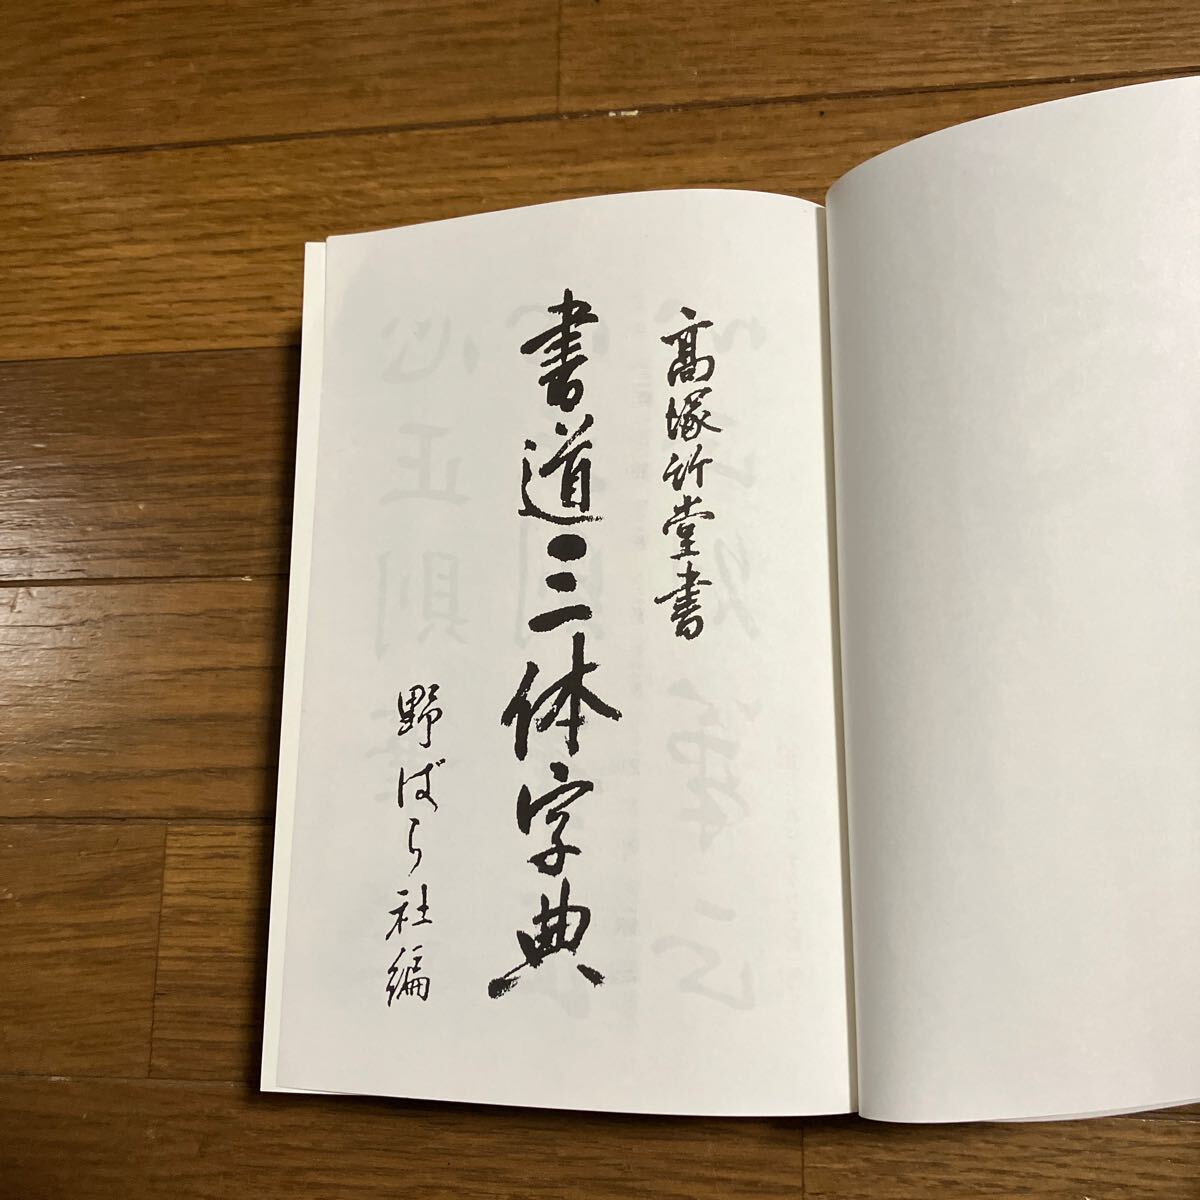 髙塚竹堂書
書道三体字典
野ばら社編